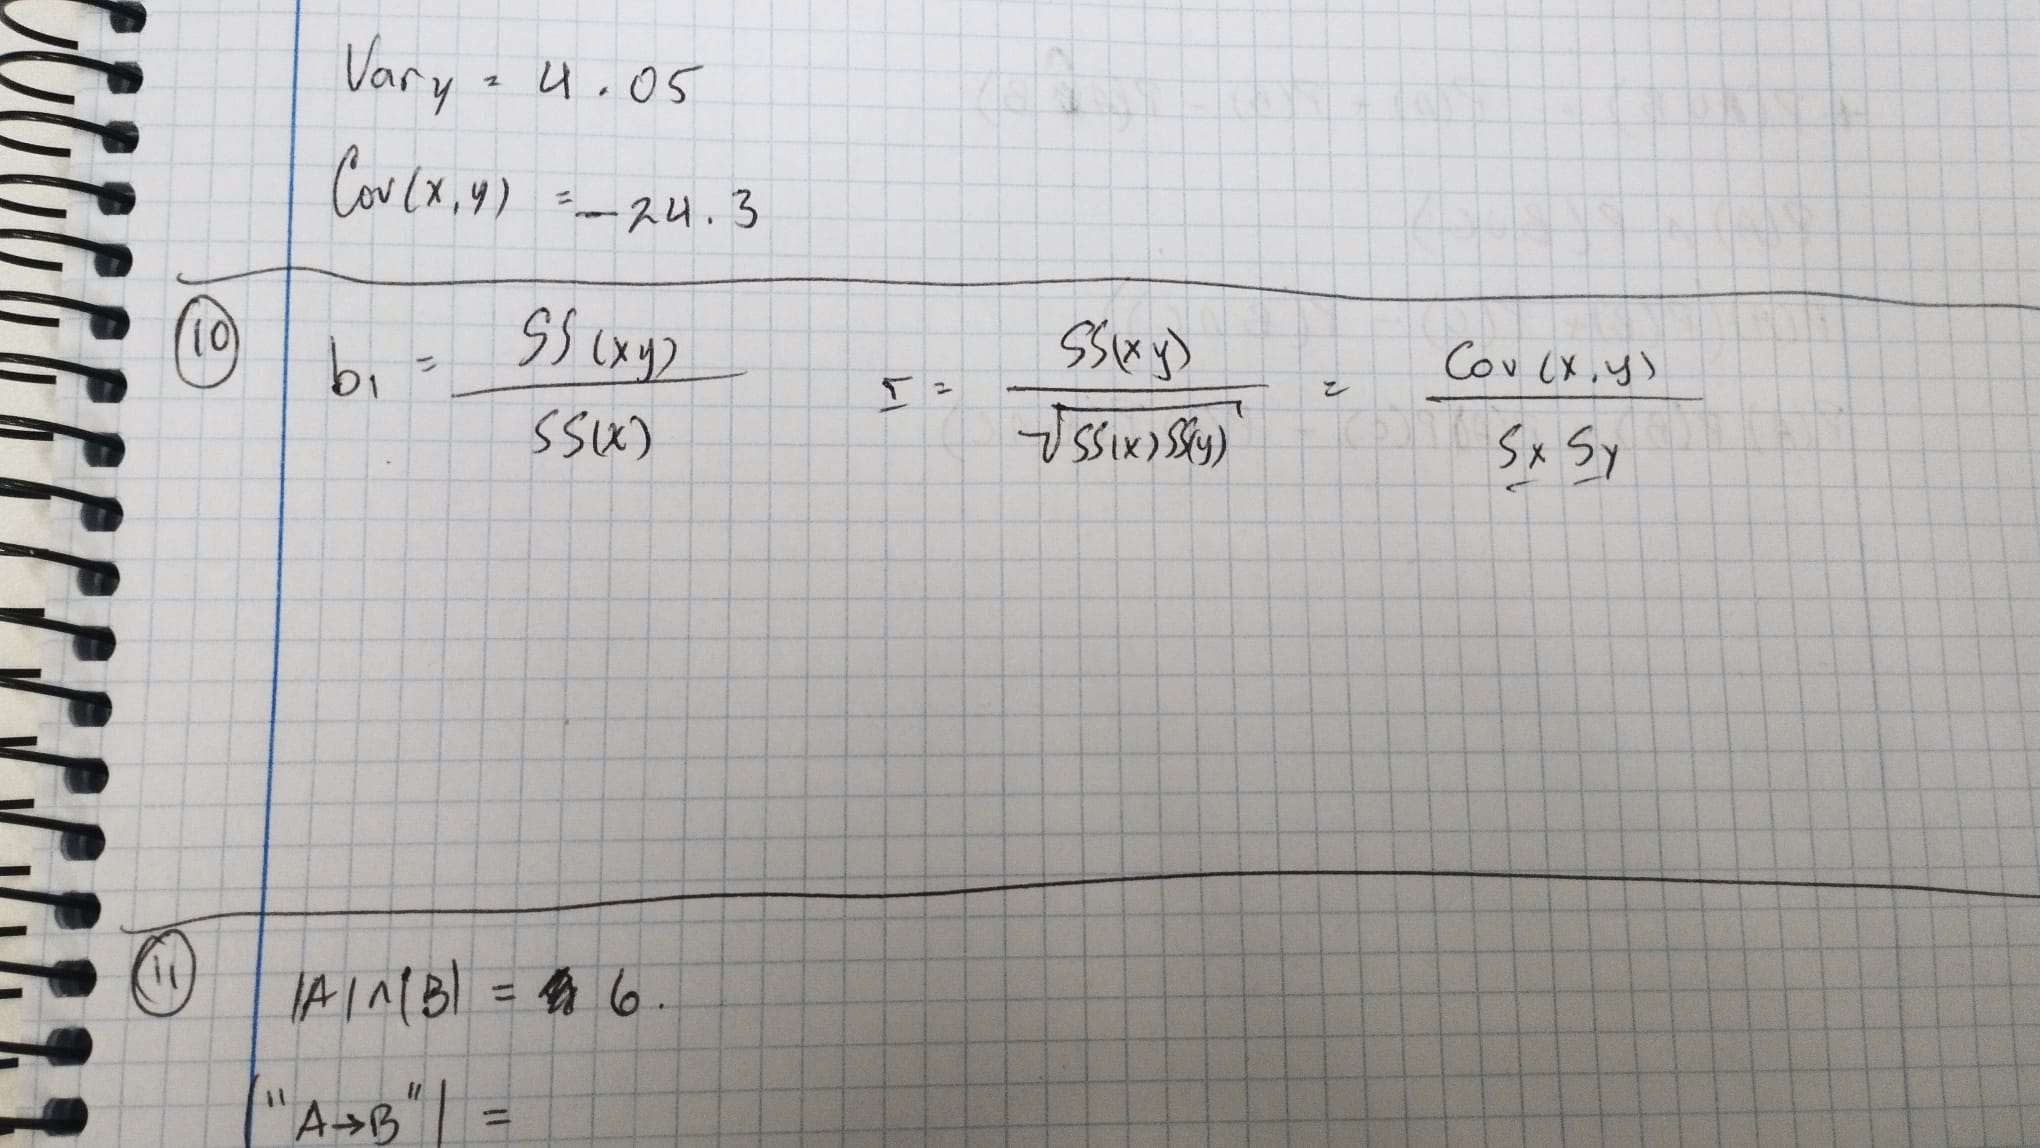 Var y = 4.05
Cov(x,y) = -24.3
(10) b₁ = SS(xy) / SS(x)   r = SS(xy) / √SS(x)SS(y) = Cov(x,y) / Sx Sy
(11) |A|∩|B| = 6.
|"A→B"| =